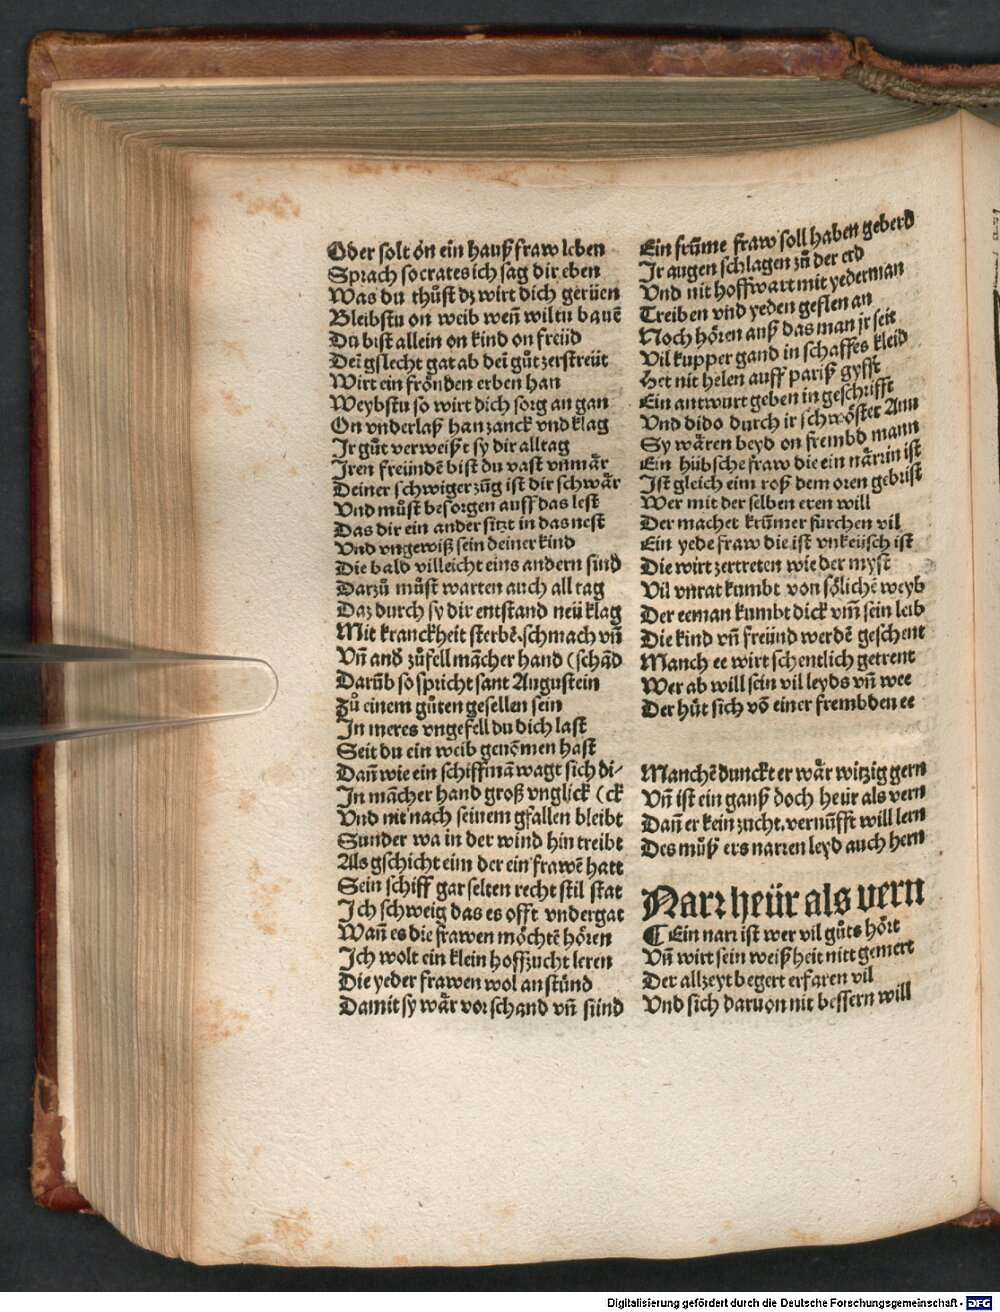 Oder solt on ein haußfraw leben
Sprach socrates ich sag dir eben
Was du thuͦst dz wirt dich geruͤen
Bleibstu on weib wen̄ wiltu bauē
Du bist allein on kind on freüd
Dei᷑ gslecht gat ab dei᷑ guͦt zerstreüt
Wirt ein froͤnden erben han
Weybstu so wirt dich sorg an gan
On vnderlaß han zanck vnd klag
Ir guͦt verweißt sy dir alltag
Iren freündē bist du vast vnmaͤr
Deiner schwiger zūg ist dir schwaͤr
Vnd muͦst besorgen auff das lest
Das dir ein ander sitzt in das nest
Vnd vngewiß sein deiner kind
Die bald villeicht eins andern sind
Darzuͦ muͦst warten auch all tag
Daz durch sy dir entstand neü klag
Mit kranckheit sterbē. schmach vn̄
Vn̄ and zuͦfell mācher hand (schād
Darūb so spricht sant Augustein
Zuͦ einem guͦten gesellen sein
In meres vngefell du dich last
Seit du ein weib genōmen hast
Dan̄ wie ein schiffmā wagt sich di⸗
In mācher hand groß vnglick (ck
Vnd nit nach seinem gfallen bleibt
Sunder wa in der wind hin treibt
Als gschicht eim der ein frawē hatt
Sein schiff gar selten recht stil stat
Ich schweig das es offt vndergat
Wan̄ es die frawen moͤchtē hoͤren
Ich wolt ein klein hoffzucht leren
Die yeder frawen wol anstünd
Damit sy waͤr vor schand vn̄ sünd
Ein frūme fraw soll haben geberd
Ir augen schlagen zuͦ der erd
Vnd nit hoffwart mit yederman
Treiben vnd yeden geflen an
Noch hoͤren auß das man jr seit
Vil kupper gand in schaffes kleid
Het nit helen auff pariß gyfft
Ein antwurt geben in geschrifft
Vnd dido durch ir schwoͤster Ann
Sy waͤren beyd on frembd mann
Ein hübsche fraw die ein naͤrrin ist
Ist gleich eim roß dem oren gebrist
Wer mit der selben eren will
Der machet krūmer furchen vil
Ein yede fraw die ist vnkeüsch ist
Die wirt zertreten wie der myst
Vil vnrat kumbt von soͤlichē weyb
Der eeman kumbt dick vm̄ sein leib
Die kind vn̄ freünd werdē geschent
Manch ee wirt schentlich getrent
Wer ab will sein vil leyds vn̄ wee
Der huͤt sich vō einer frembden ee
Manchē dunckt er waͤr witzig gern
Vn̄ ist ein ganß doch heür als vern
Dan̄ er kein zucht. vernūfft will lern
Des muͦß ers narren leyd auch hern
Narr heür als vern
¶ Ein narr ist wer vil guͦts hoͤrt
Vn̄ wirt sein weißheit nitt gemert
Der allzeyt begert erfaren vil
Vnd sich daruon nit bessern will
Digitalisierung gefördert durch die Deutsche Forschungsgemeinschaft - DFG